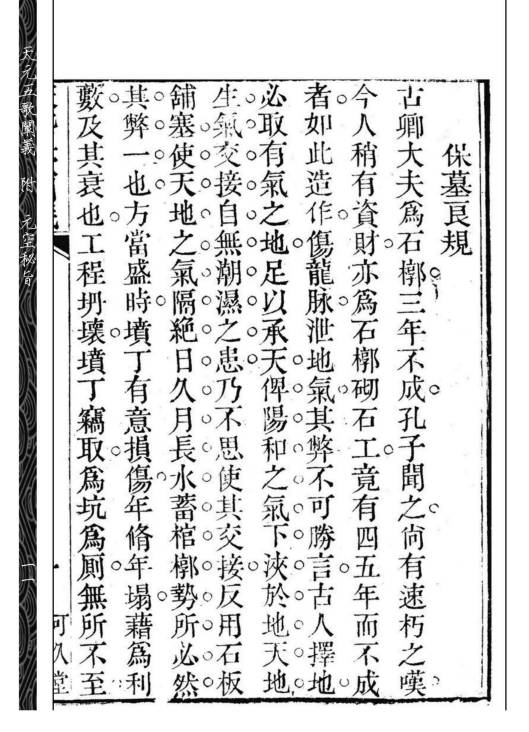 保墓良規
古卿大夫爲石槨三年不成孔子聞之尙有速朽之嘆
今人稍有資財亦爲石槨砌石工竟有四五年而不成
者如此造作傷龍脉泄地氣其弊不可勝言古人擇地
必取有氣之地足以承天俾陽和之氣下浹於地天地
生氣交接自無潮濕之患乃不思使其交接反用石板
舖塞使天地之氣隔絶日久月長水蓄棺槨勢所必然
其弊一也方當盛時墳丁有意損傷年脩年塌藉爲利
數及其衰也工程坍壞墳丁竊取爲坑爲厠無所不至
可久堂
天元五歌闡義 附 元空秘旨
一一